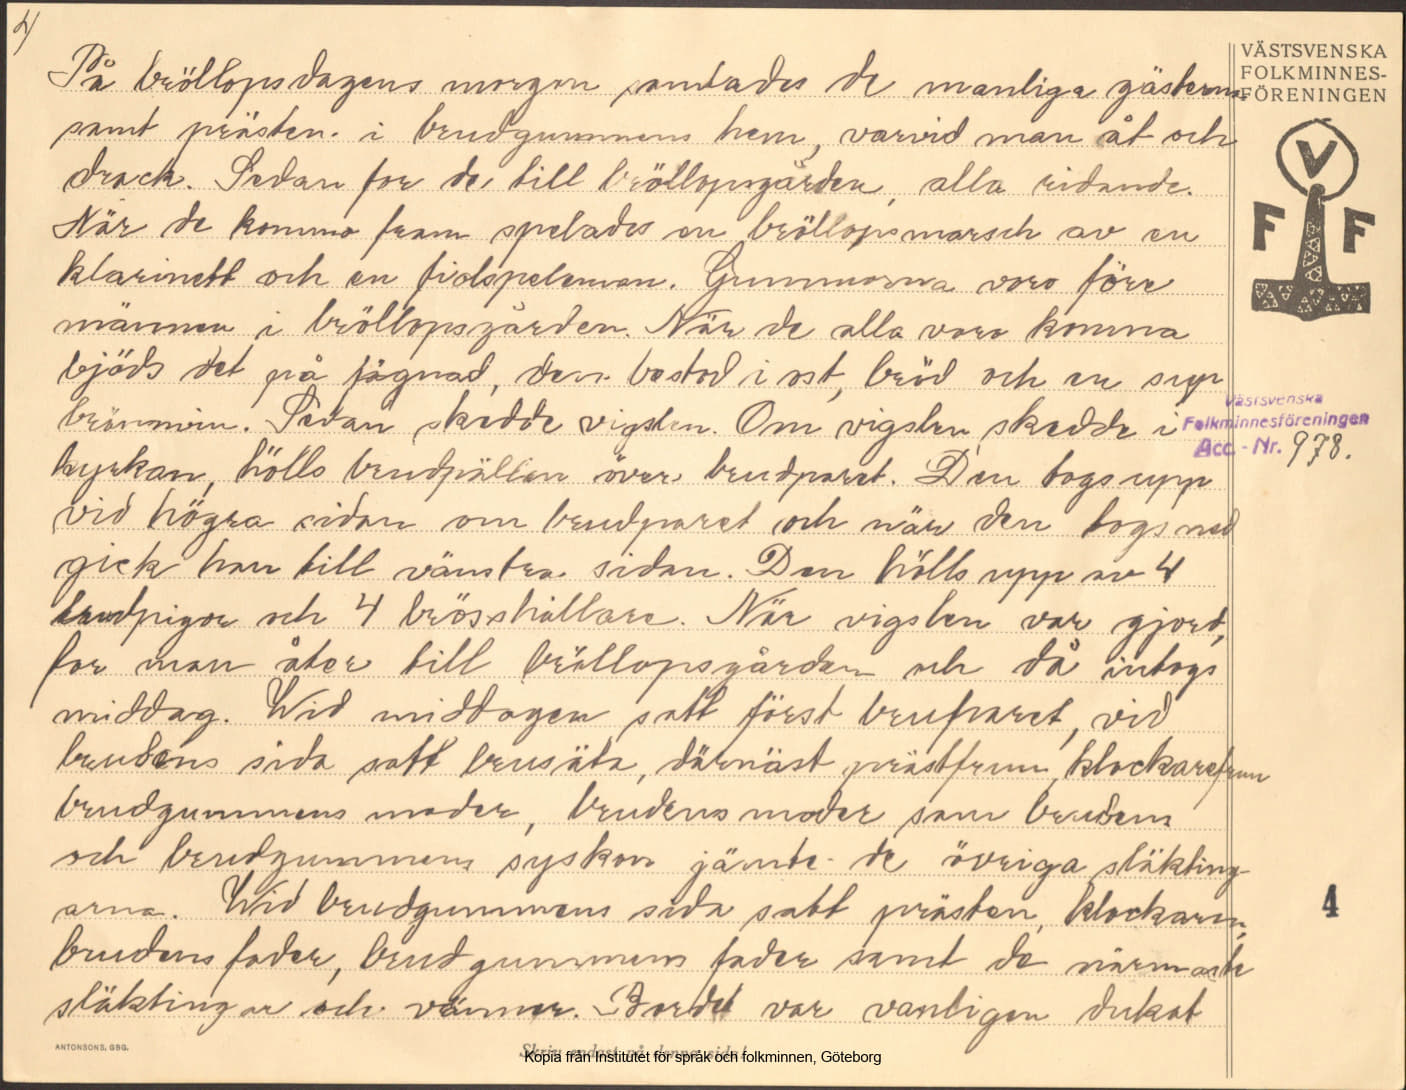 4)
På bröllopsdagens morgon samlades de manliga gästerna
samt prästen i brudgummens hem, varvid man åt och
drack. Sedan for de till bröllopsgården, alla ridande.
När de kommo fram spelades en bröllopsmarsch av en
klarinett och en fiolspeleman. Gummorna voro före
männen i bröllopsgården. När de alla voro komna
bjöds det på fägnad, den bestod i ost, bröd och en sup
brännvin. Sedan skedde vigslen. Om vigslen skedde i
kyrkan, hölls brudpällen över brudparet. Den togs upp
vid högra sidan om brudparet och när den togs ned
gick han till vänstra sidan. Den hölls upp av 4
brudpigor och 4 brösshållare. När vigslen var gjord,
for man åter till bröllopsgården och då intogs
middag. Wid middagen satt först bruparet, vid
brudens sida satt brusäta, därnäst prästfrun, klockarefrun
brudgummens moder, brudens moder som brudens
och brudgummens syskon jämte de övriga släkting-
arna. Wid brudgummens sida satt prästen, klockaren,
brudens fader, brudgummens fader samt de närmaste
släktingar och vänner. Bordet var vanligen dukat
VÄSTSVENSKA
FOLKMINNES-
FÖRENINGEN
V
F F
Västsvenska
Folkminnesföreningen
Acc. - Nr. 978.
4
ANTONSONS, GBG.
Skriv endast på denna sida!
Kopia från Institutet för språk och folkminnen, Göteborg